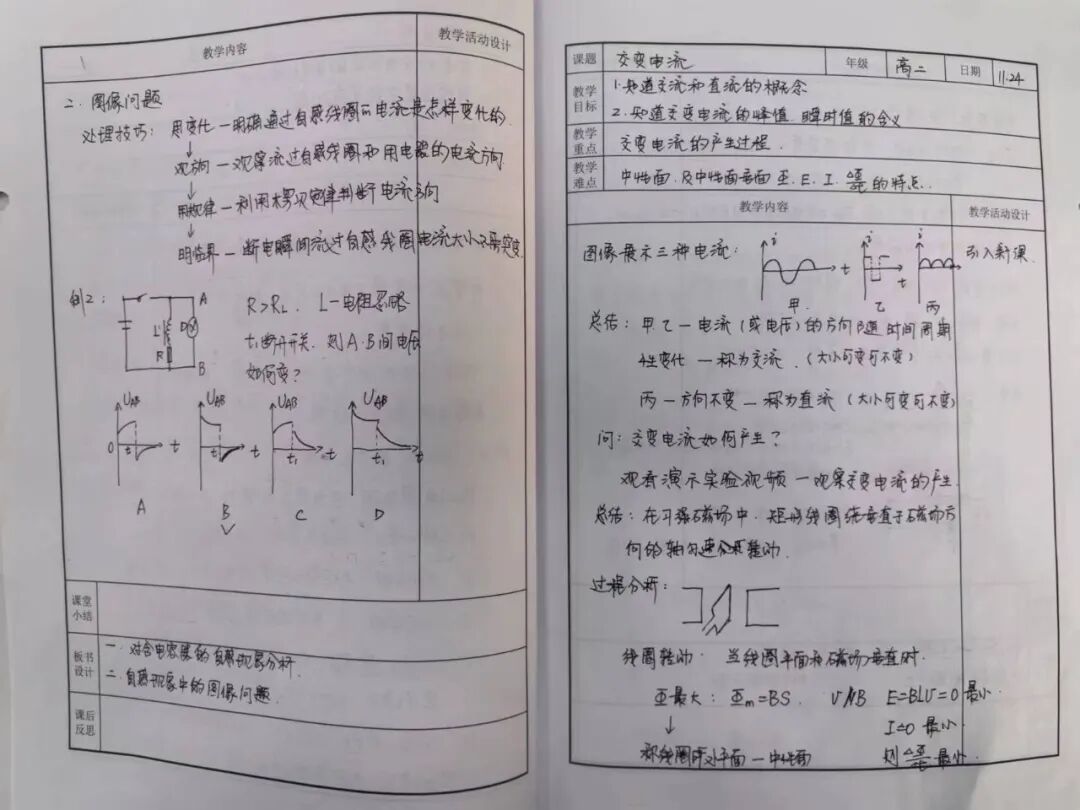 教学内容
教学活动设计
二、图像问题
处理技巧：思变化—明确通过自感线圈的电流是怎样变化的.
↓
观方向—观察流过自感线圈和用电器的电流方向
↓
用规律—利用楞次定律判断电流方向
↓
明临界—断电瞬间流过自感线圈电流大小不突变.
例2：
A
L
D
R
B
R>RL. L—电阻忽略
t₁断开开关. 则A.B间电压
如何变？
UAB UAB UAB UAB
0 t₁ t t₁ t t₁ t t₁ t
A B C D
课堂小结
板书设计
一. 对含电容器的自感现象分析.
二. 自感现象中的图像问题.
课后反思
课题 交变电流 年级 高二 日期 11.24
教学目标
1.知道交流和直流的概念
2.知道交变电流的峰值. 瞬时值的含义
教学重点 交变电流的产生过程.
教学难点 中性面.及中性面垂面 Φ. E. I. ΔΦ/Δt 的特点..
教学内容
教学活动设计
图像展示三种电流：
i t i t i
甲. 乙 丙
引入新课.
总结：甲乙—电流(或电压)的方向随时间周期
性变化 —称为交流. (大小可变可不变)
丙—方向不变—称为直流 (大小可变可不变)
问：交变电流如何产生？
观看演示实验视频—观察交变电流的产生.
总结：在匀强磁场中. 矩形线圈绕垂直于磁场方
向的轴匀速转动.
过程分析：
线圈转动. 当线圈平面和磁场垂直时.
Φ最大：Φm=BS. V∥B E=BLV=0 最小.
↓ I=0 最小.
称线圈所处平面—中性面 则 ΔΦ/Δt 最小.